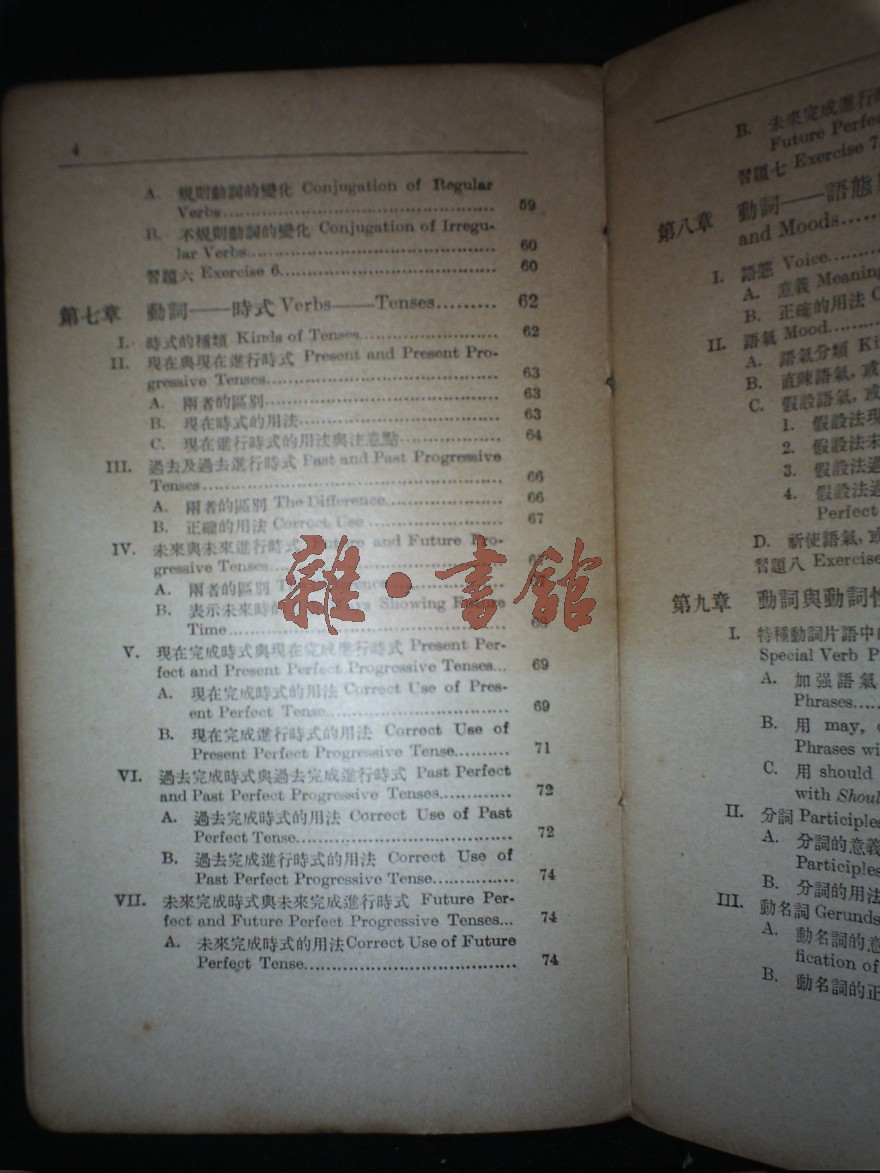 4
A. 規則動詞的變化 Conjugation of Regular
Verbs 59
B. 不規則動詞的變化 Conjugation of Irregu-
lar Verbs 60
習題六 Exercise 6 60
第七章 動詞——時式 Verbs——Tenses 62
I. 時式的種類 Kinds of Tenses 62
II. 現在與現在進行時式 Present and Present Pro-
gressive Tenses 63
A. 兩者的區別 63
B. 現在時式的用法 63
C. 現在進行時式的用法與注意點 64
III. 過去及過去進行時式 Past and Past Progressive
Tenses 66
A. 兩者的區別 The Difference 66
B. 正確的用法 Correct Use 67
IV. 未來與未來進行時式 Future and Future Pro-
gressive Tenses
A. 兩者的區別
B. 表示未來時的 Showing
Time
V. 現在完成時式與現在完成進行時式 Present Per-
fect and Present Perfect Progressive Tenses 69
A. 現在完成時式的用法 Correct Use of Pres-
ent Perfect Tense 69
B. 現在完成進行時式的用法 Correct Use of
Present Perfect Progressive Tense 71
VI. 過去完成時式與過去完成進行時式 Past Perfect
and Past Perfect Progressive Tenses 72
A. 過去完成時式的用法 Correct Use of Past
Perfect Tense 72
B. 過去完成進行時式的用法 Correct Use of
Past Perfect Progressive Tense 74
VII. 未來完成時式與未來完成進行時式 Future Per-
fect and Future Perfect Progressive Tenses 74
A. 未來完成時式的用法 Correct Use of Future
Perfect Tense 74
雜·書館
B. 未來完成進行
Future Perfe
習題七 Exercise 7
第八章 動詞——語態
and Moods
I. 語態 Voice
A. 意義 Meaning
B. 正確的用法
II. 語氣 Mood
A. 語氣分類 Ki
B. 直陳語氣，或
C. 假設語氣，或
1. 假設法現
2. 假設法未
3. 假設法過
4. 假設法過
Perfect
D. 祈使語氣，或
習題八 Exercise
第九章 動詞與動詞性
I. 特種動詞片語中的
Special Verb P
A. 加强語氣
Phrases
B. 用 may,
Phrases wi
C. 用 should
with Shoul
II. 分詞 Participles
A. 分詞的意義
Participles
B. 分詞的用法
III. 動名詞 Gerunds
A. 動名詞的意
fication of
B. 動名詞的正